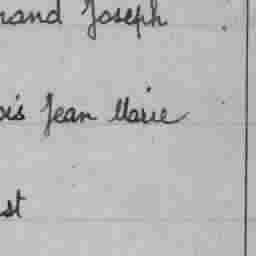 rand Joseph
ois Jean Marie
st